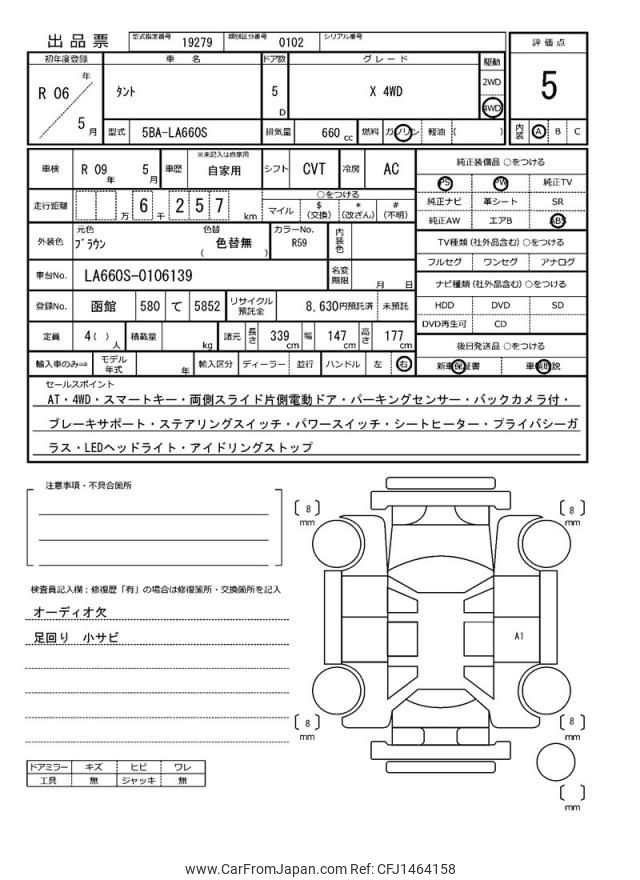 出品票 型式指定番号 19279 類別区分番号 0102 シリアル番号
評価点
5
内装 A B C
初年度登録 車名 ドア数 グレード 駆動
R 06 年 5 月 タント 5 D X 4WD 2WD 4WD
型式 5BA-LA660S 排気量 660 cc 燃料 ガソリン 軽油 ( )
車検 R 09 年 5 月 車歴 ※未記入は自家用 自家用 シフト CVT 冷房 AC
走行距離 万 6 千 2 5 7 km ○をつける
マイル $ (交換) * (改ざん) # (不明)
外装色 元色 ブラウン 色替 ( 色替無 ) カラーNo. R59 内装色
車台No. LA660S-0106139 名変期限 月 日
登録No. 函館 580 て 5852 リサイクル預託金 8,630円預託済 未預託
定員 4( ) 人 積載量 kg 諸元 長さ 339 cm 幅 147 cm 高さ 177 cm
輸入車のみ⇒ モデル年式 年 輸入区分 ディーラー 並行 ハンドル 左 右
純正装備品 ○をつける
PS PW 純正TV
純正ナビ 革シート SR
純正AW エアB ABS
TV種類 (社外品含む) ○をつける
フルセグ ワンセグ アナログ
ナビ種類 (社外品含む) ○をつける
HDD DVD SD
DVD再生可 CD
後日発送品 ○をつける
新車保証書 車輌取説
セールスポイント
AT・4WD・スマートキー・両側スライド片側電動ドア・パーキングセンサー・バックカメラ付・
ブレーキサポート・ステアリングスイッチ・パワースイッチ・シートヒーター・プライバシーガ
ラス・LEDヘッドライト・アイドリングストップ
注意事項・不具合箇所
検査員記入欄：修復歴「有」の場合は修復箇所・交換箇所を記入
オーディオ欠
足回り 小サビ
ドアミラー キズ ヒビ ワレ
工具 無 ジャッキ 無
8 mm
8 mm
A1
8 mm
8 mm
mm
www.CarFromJapan.com Ref: CFJ1464158